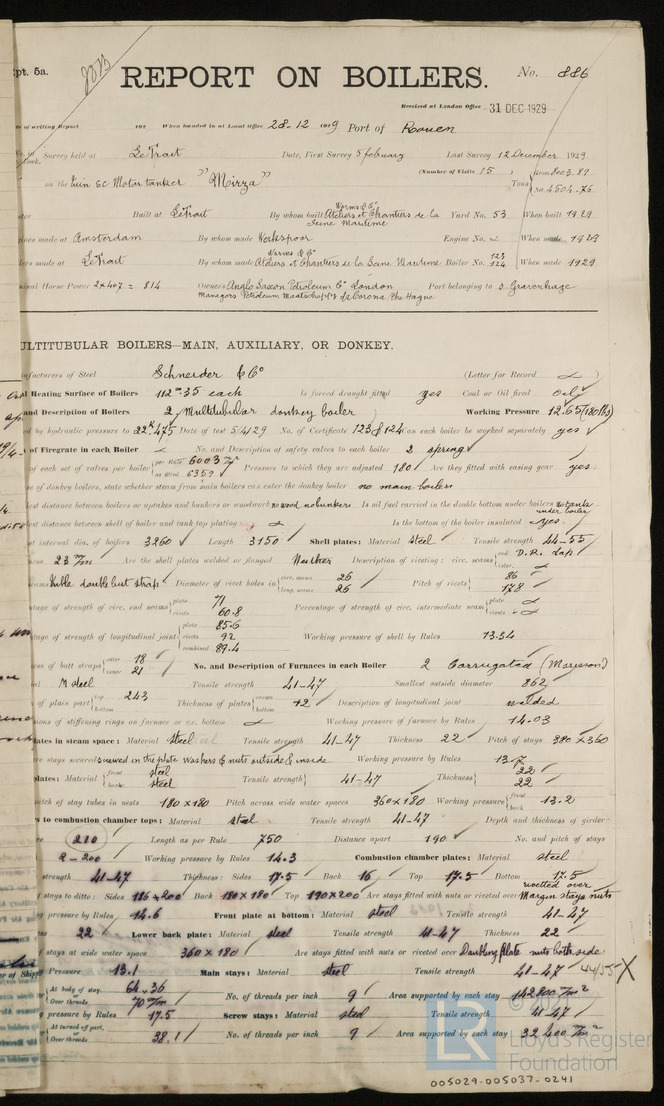 pt. 5a.
REPORT ON BOILERS.
No. 886
Received at London Office 31 DEC 1929
of writing Report 192 When handed in at Local Office 28-12 1929 Port of Rouen
Survey held at LeTrait Date, First Survey 5 february Last Survey 12 December 1929
(Number of Visits 15)
on the Twin sc Motor tanker "Mirza" Tons Gross 8003.89
Net 4504.75
Built at LeTrait By whom built Worms & Co Ateliers et Chantiers de la Seine Maritime Yard No. 53 When built 1929
made at Amsterdam By whom made Werkspoor Engine No. When made 1929
made at LeTrait By whom made Worms & Co Ateliers et Chantiers de la Seine Maritime Boiler No. 123 124 When made 1929
Horse Power 2x407 = 814 Owners Anglo Saxon Petroleum Co London Port belonging to s Gravenhage
Managers Petroleum La Corona The Hague
ULTITUBULAR BOILERS—MAIN, AUXILIARY, OR DONKEY.
of Steel Schneider & Co (Letter for Record)
Heating Surface of Boilers 112 35 each Is forced draught fitted yes Coal or Oil fired Oil
and Description of Boilers 2 Multitubular donkey boiler Working Pressure 12.65 (180 lbs)
by hydraulic pressure to 22 475 Date of test 5/4/29 No. of Certificate 123 & 124 Can each boiler be worked separately yes
of Firegrate in each Boiler No. and Description of safety valves to each boiler 2 spring
of each set of valves per boiler per Rule 6003
as fitted 6359 Pressure to which they are adjusted 180 Are they fitted with easing gear yes
of donkey boilers, state whether steam from main boilers can enter the donkey boiler no main boilers
distance between boilers or uptakes and bunkers or woodwork no wood no bunkers Is oil fuel carried in the double bottom under boilers no tanks under boiler
distance between shell of boiler and tank top plating Is the bottom of the boiler insulated yes
internal dia. of boilers 3260 Length 3150 Shell plates: Material steel Tensile strength 44-55
23 m/m Are the shell plates welded or flanged Neither Description of riveting: circ. seams end D.R. Lap
inter.
double butt straps Diameter of rivet holes in circ. seams 26
long. seams 26 Pitch of rivets 86
178
of strength of circ. end seams plate 71
rivets 60.8 Percentage of strength of circ. intermediate seam plate
rivets
of strength of longitudinal joint plate 85.6
rivets 92
combined 89.4 Working pressure of shell by Rules 13.54
of butt straps outer 18
inner 21 No. and Description of Furnaces in each Boiler 2 Corrugated (Morisson)
M steel Tensile strength 41-47 Smallest outside diameter 862
of plain part top 243
bottom Thickness of plates crown
bottom 12 Description of longitudinal joint welded
of stiffening rings on furnace or c.c. bottom Working pressure of furnace by Rules 14.03
plates in steam space: Material steel Tensile strength 41-47 Thickness 22 Pitch of stays 380 x 360
stays secured screwed in the plate washers & nuts outside & inside Working pressure by Rules 13.7
plates: Material front steel
back steel Tensile strength 41-47 Thickness 22
22
pitch of stay tubes in nests 180 x 180 Pitch across wide water spaces 360 x 180 Working pressure front
back 13.2
to combustion chamber tops: Material steel Tensile strength 41-47 Depth and thickness of girder
210 Length as per Rule 750 Distance apart 190 No. and pitch of stays
2-200 Working pressure by Rules 14.3 Combustion chamber plates: Material steel
strength 41-47 Thickness: Sides 17.5 Back 16 Top 17.5 Bottom 17.5
of stays to ditto: Sides 186 x 200 Back 180 x 180 Top 190 x 200 Are stays fitted with nuts or riveted over riveted over Margin stays nuts
pressure by Rules 14.6 Front plate at bottom: Material steel Tensile strength 41-47
22 Lower back plate: Material steel Tensile strength 41-47 Thickness 22
stays at wide water space 360 x 180 Are stays fitted with nuts or riveted over Doubling plate nuts both side
Pressure 13.1 Main stays: Material steel Tensile strength 41-47 44/55 X
At body of stay, 64.36
or
Over threads 70 m/m No. of threads per inch 9 Area supported by each stay 142800 m/m²
pressure by Rules 17.5 Screw stays: Material steel Tensile strength 41-47
At turned off part,
or
Over threads 38.1 No. of threads per inch 9 Area supported by each stay 32400 m/m²
© 2021
LR
Lloyd's Register
Foundation
005029-005037-0241